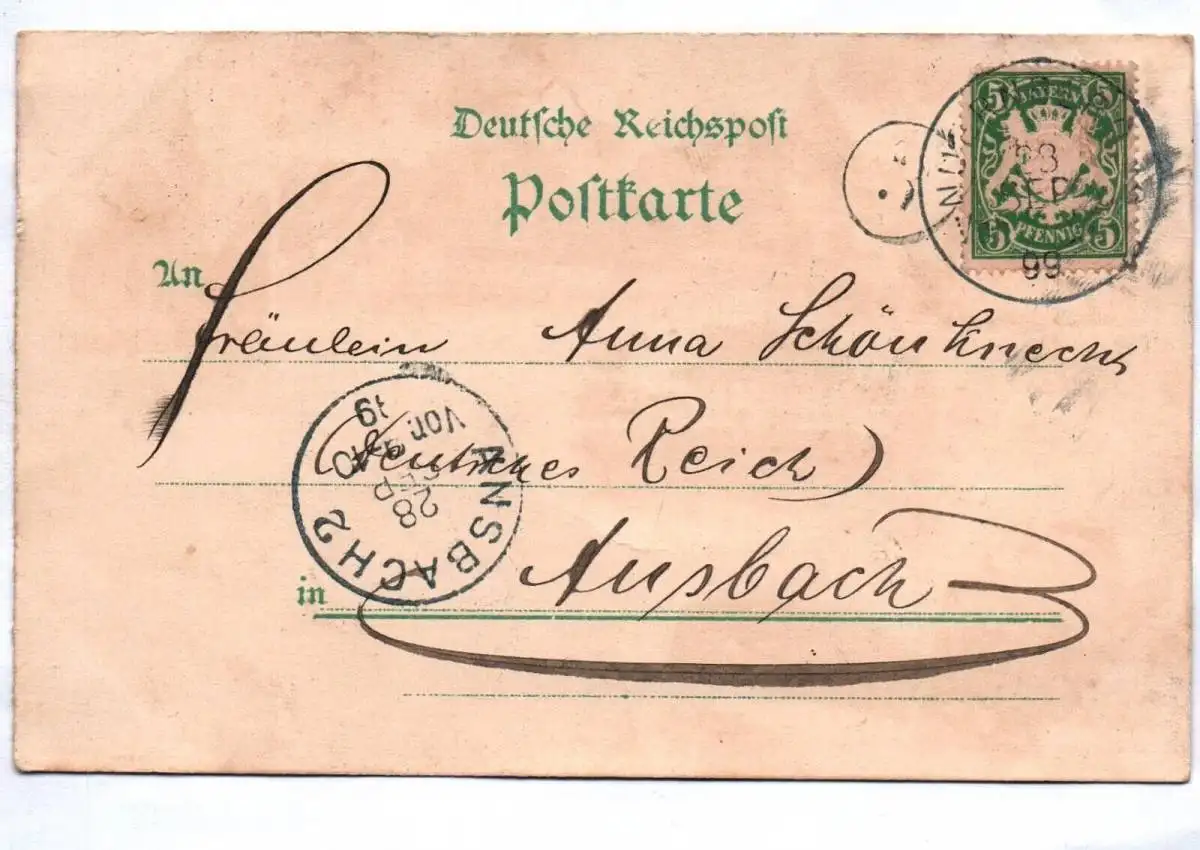 Deutsche Reichspost
Postkarte
BAYERN
5 5
5 PFENNIG 5
SEP
99
An
Fräulein Anna Schönknecht
(Deutsches Reich)
in Ansbach
ANSBACH 2
28
SEP
Vor.